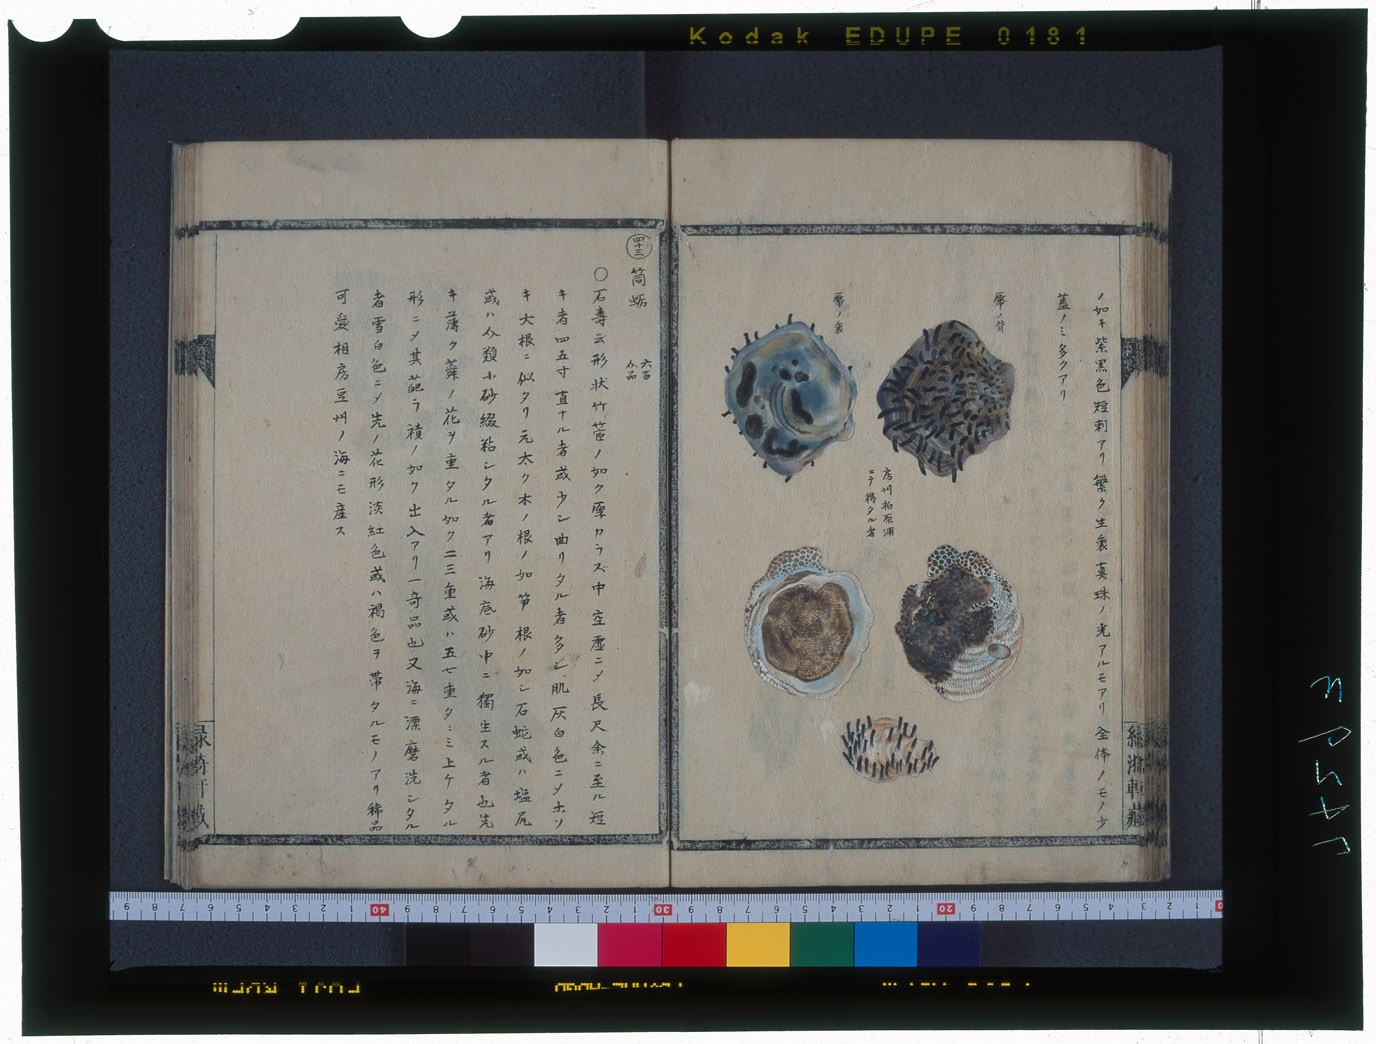 Kodak EDUPE 0181
ノ如キ紫黒色短刺アリ繁ク生裏真珠ノ光アルモアリ全体ノモノ少
蓋ノミ多クアリ
靨ノ背
靨ノ裏
房州柏原浦
ニテ得タル者
四十三
筒蛎
六百
介品
〇石寿云形状竹筒ノ如ク厚カラズ中空虚ニメ長尺余ニ至ル短
キ者四五寸直ナル者或少シ曲リタル者多シ肌灰白色ニメホソ
キ大根ニ似タリ元太ク木ノ根ノ如笋根ノ如シ石蛇或ハ塩尻
或ハ介類小砂綴粘シタル者アリ海底砂中ニ獨生スル者也先
キ薄ク蕣ノ花ヲ重タル如ク二三重或ハ五七重タヽミ上ケタル
形ニメ其葩ラ積ノ如ク出入アリ一奇品也又海ニ漂磨洗シタル
者雪白色ニメ先ノ花形淡紅色或ハ褐色ヲ帯タルモノアリ稀品
可愛相房豆州ノ海ニモ産ス